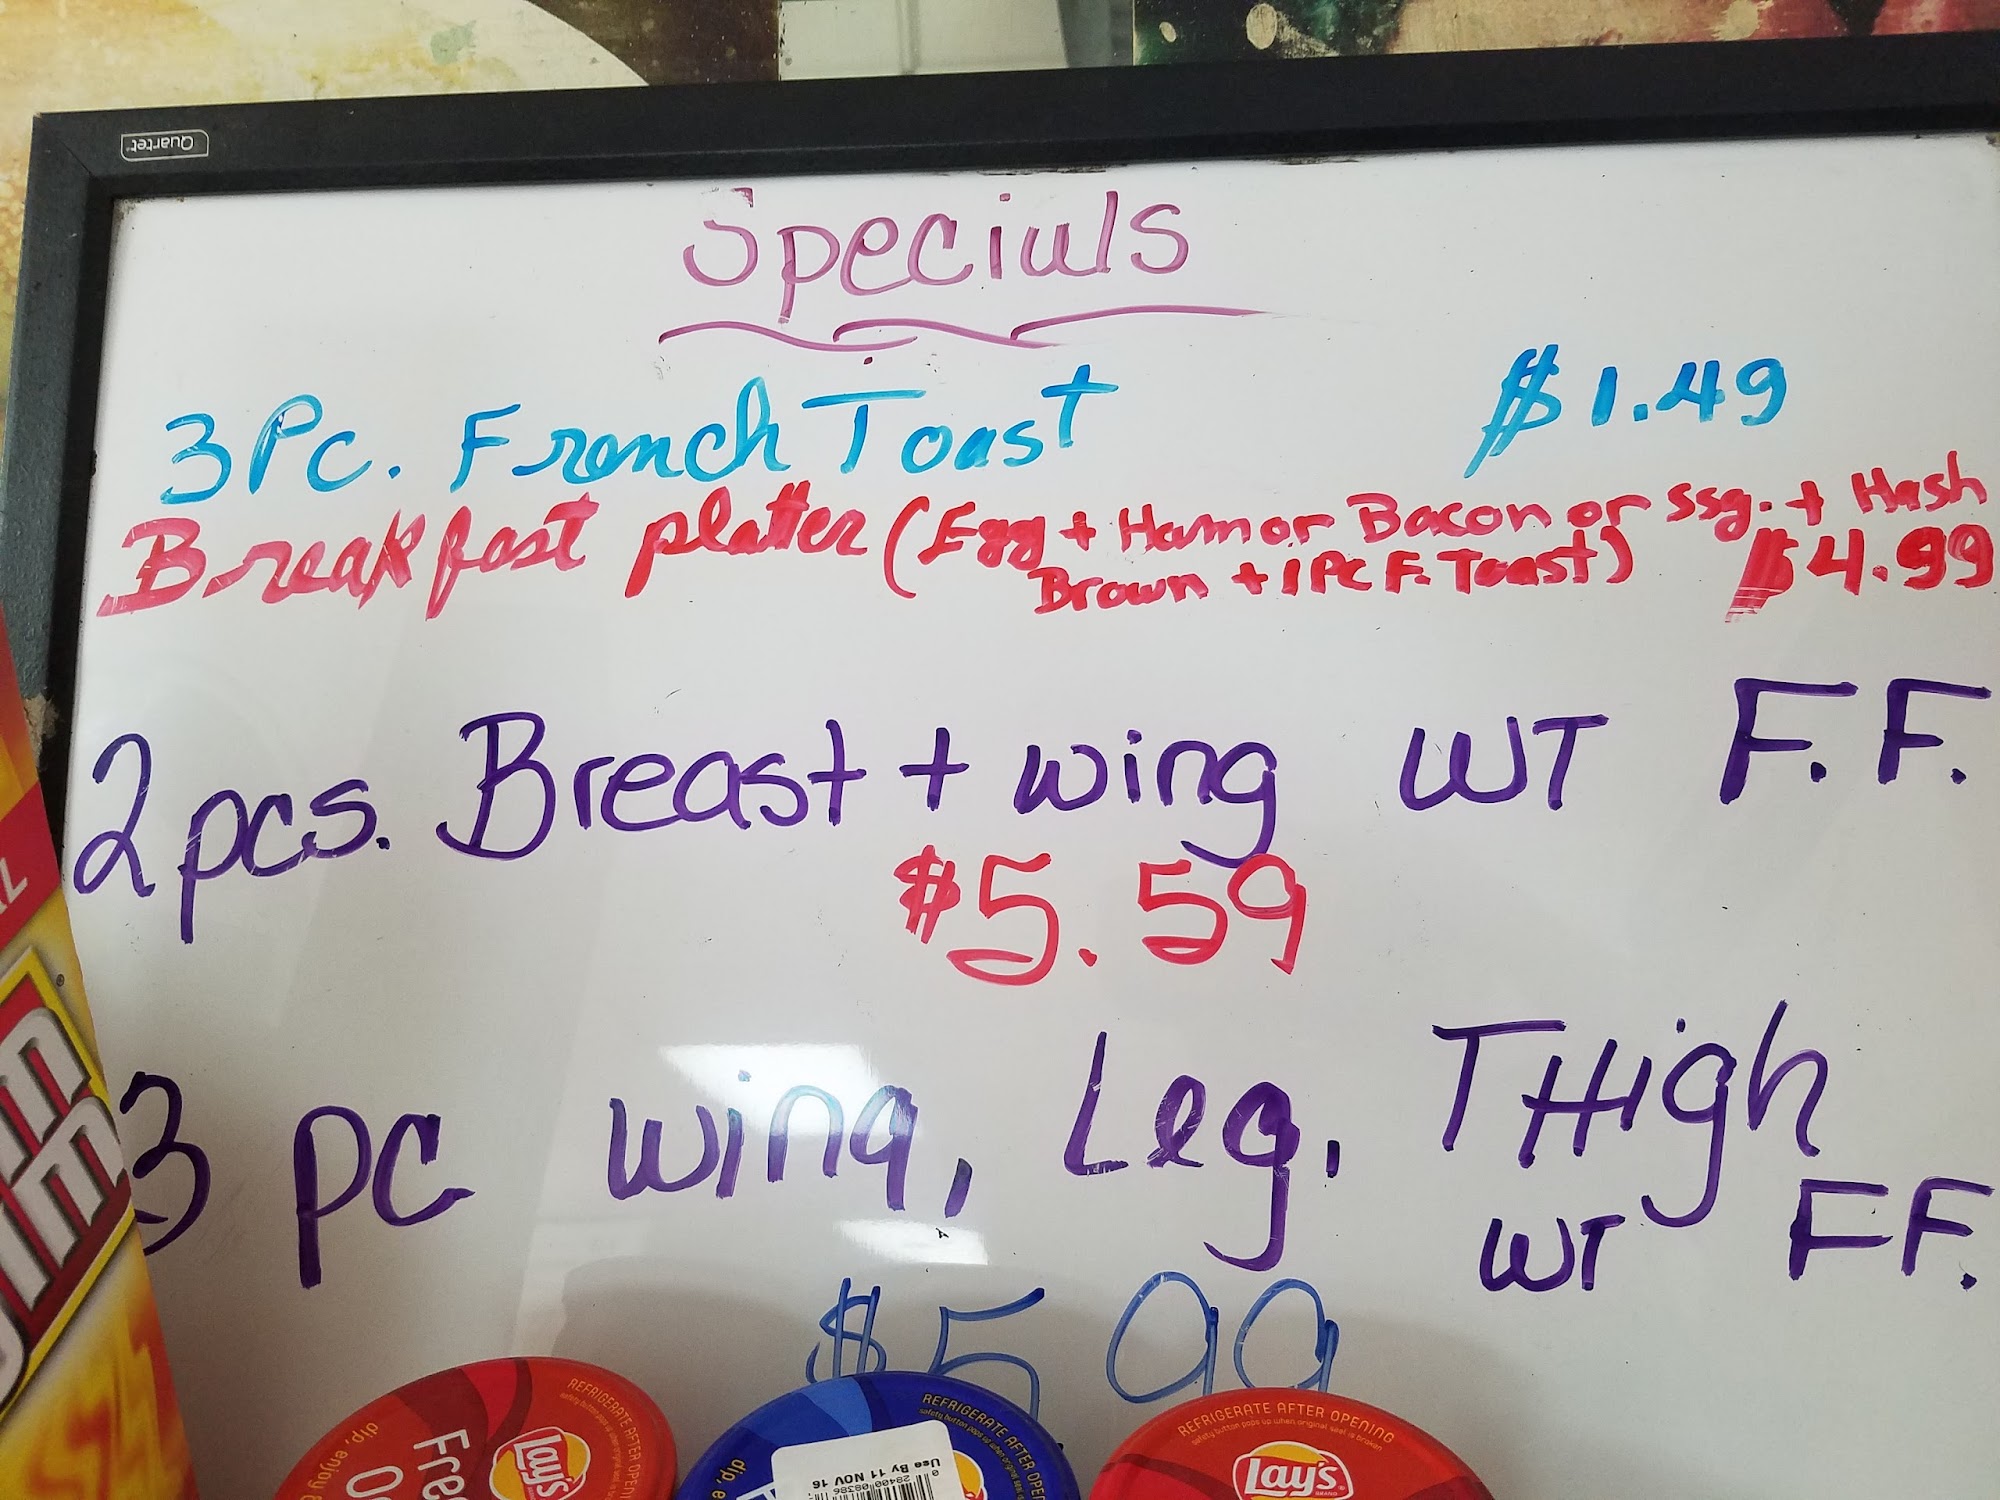 Quartet
Specials
3 Pc. French Toast $1.49
Breakfast platter (Egg + Ham or Bacon or ssg. + Hash
Brown + 1 PC F. Toast) $4.99
2 pcs. Breast + wing WT F.F.
$5.59
3 PC wing, Leg, THigh
WT FF.
$5 99
REFRIGERATE AFTER OPENING
safety button pops up when original seal is broken
Lay's
dip, enjoy
REFRIGERATE AFTER OPENING
Lay's
Use By 11 NOV 16